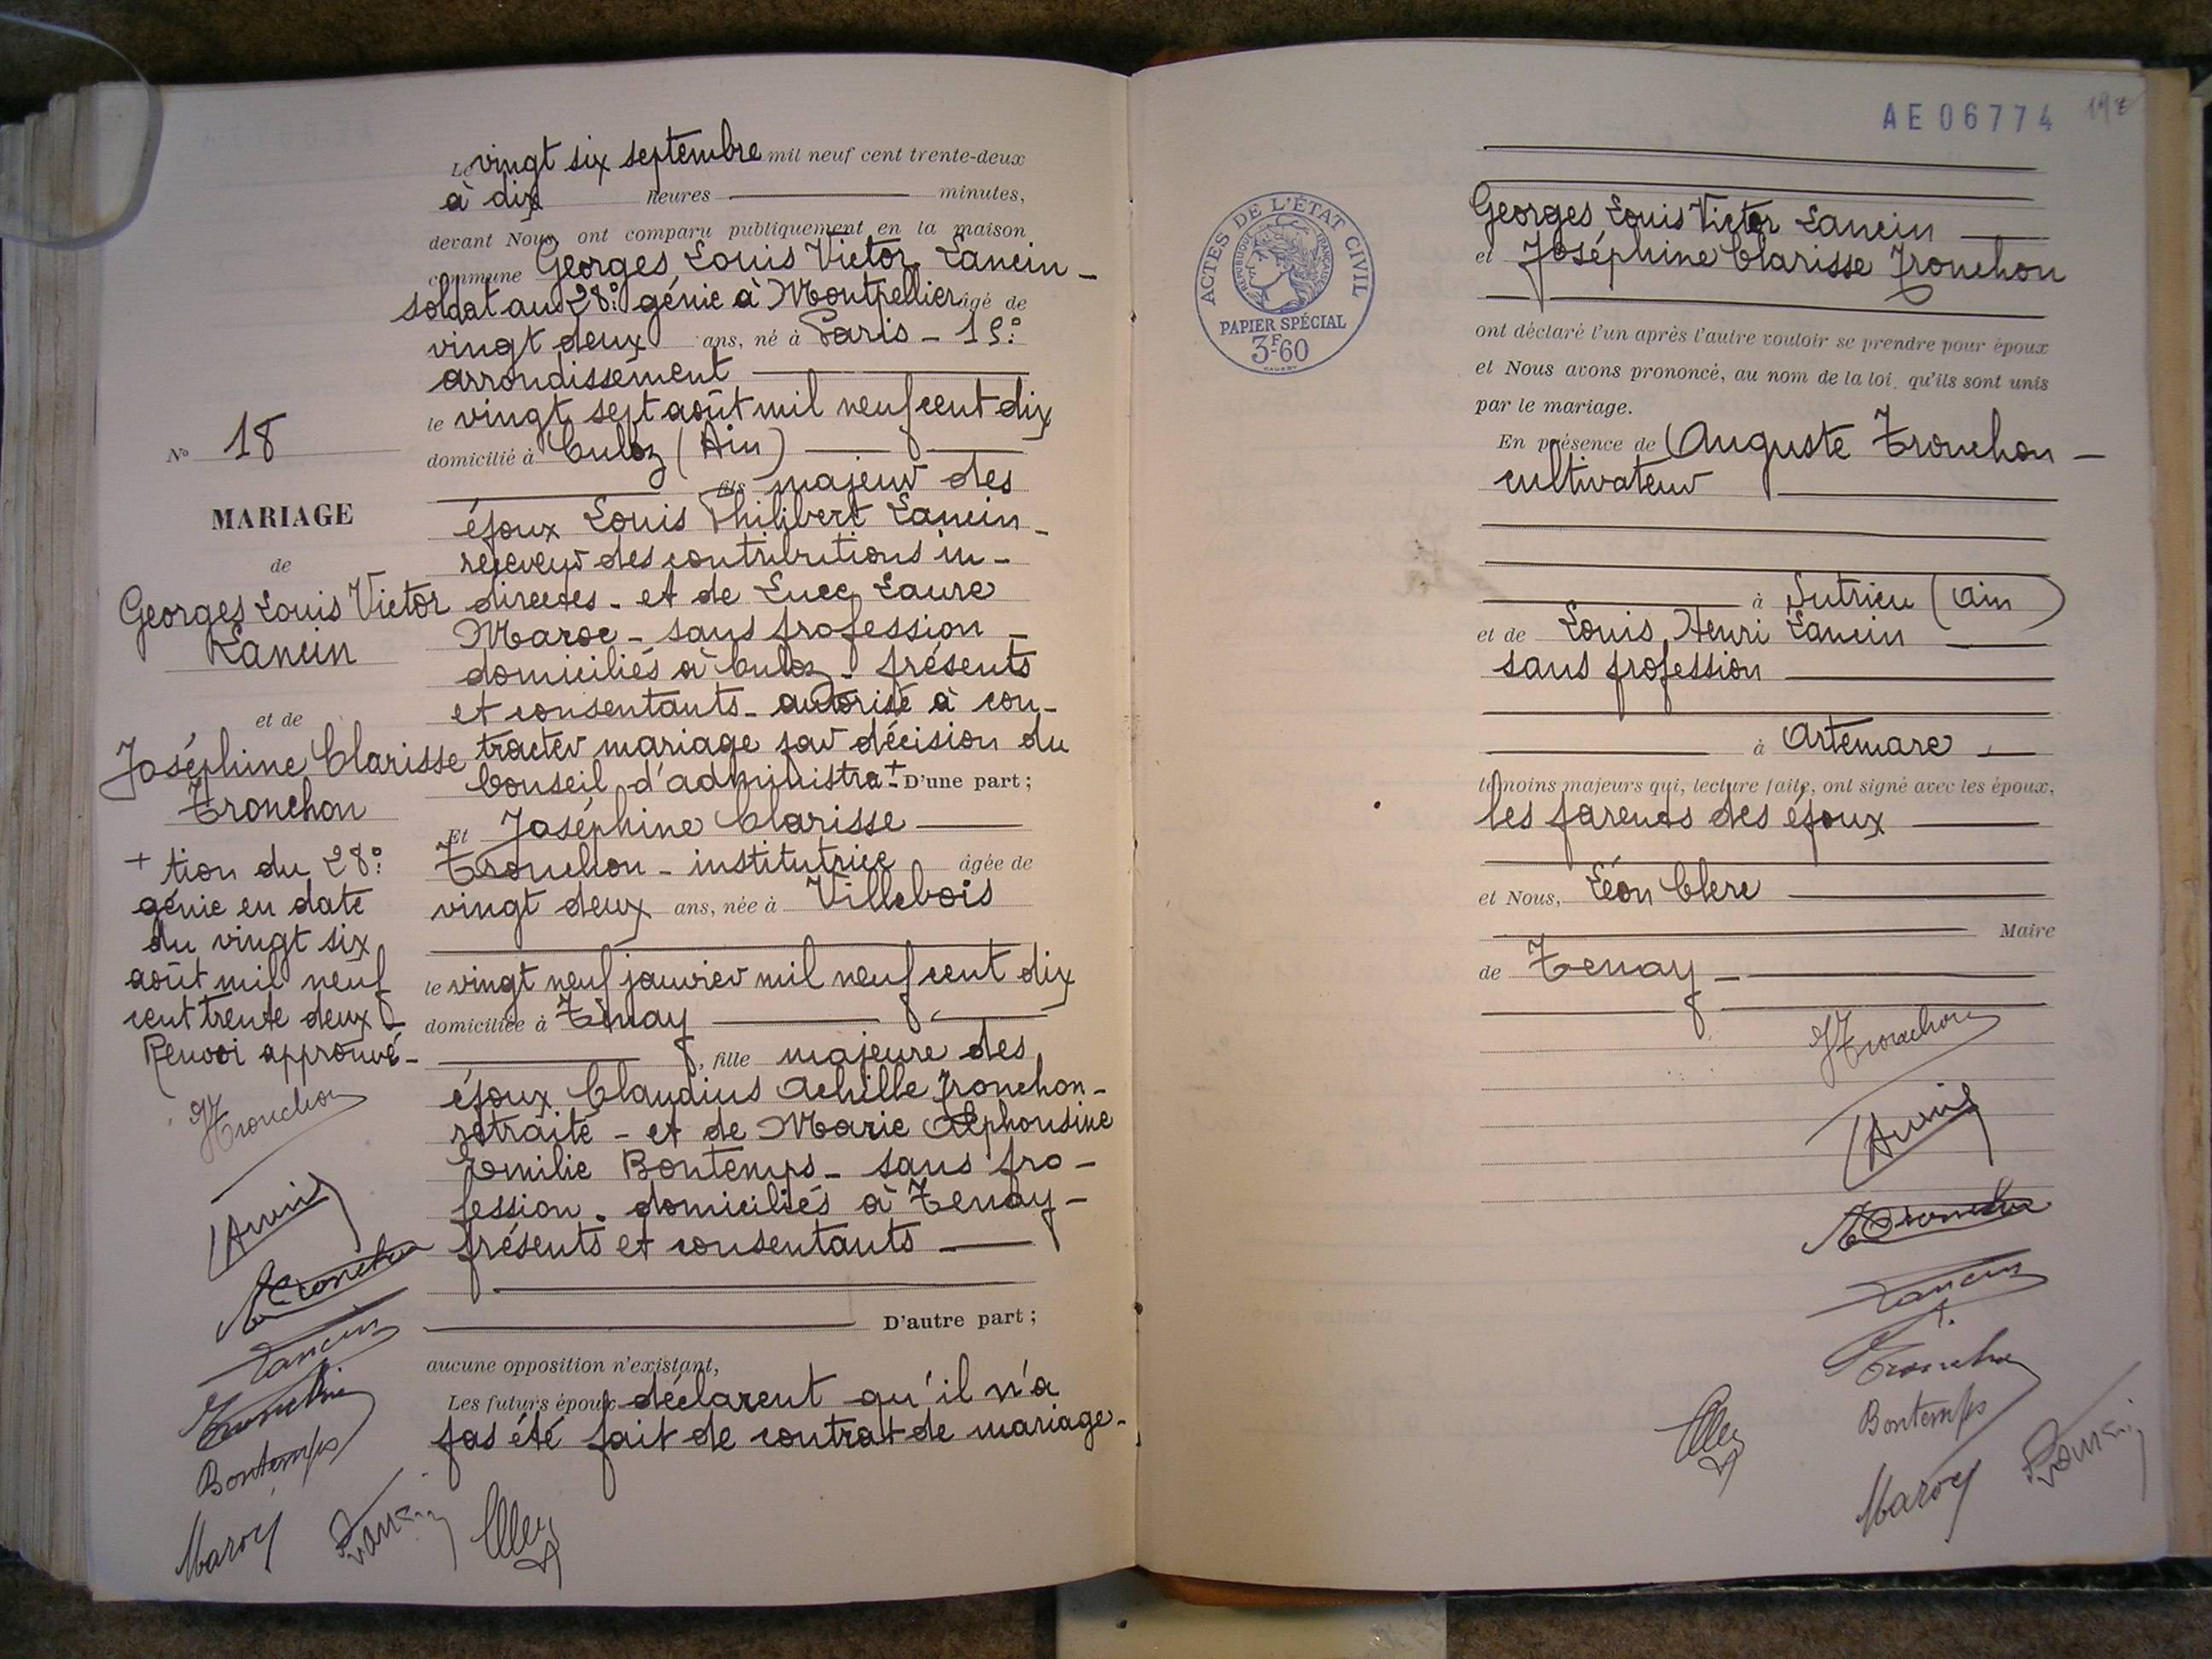 Le vingt six septembre mil neuf cent trente-deux
à dix heures minutes,
devant Nous, ont comparu publiquement en la maison
commune Georges Louis Victor Lancin -
soldat au 28e génie à Montpellier âgé de
vingt deux ans, né à Paris - 19e
arrondissement
le vingt sept août mil neuf cent dix
domicilié à Culoz (Ain)
fils majeur des
époux Louis Philibert Lancin -
receveur des contributions in-
directes - et de Lucc Laure
Maroc - sans profession -
domiciliés à Culoz - présents
et consentants - autorisé à con-
tracter mariage par décision du
Conseil d'administra + D'une part ;
Et Joséphine Clarisse
Tronchon - institutrice âgée de
vingt deux ans, née à Villebois
le vingt neuf janvier mil neuf cent dix
domiciliée à Tenay
, fille majeure des
époux Claudius Achille Tronchon -
retraité - et de Marie Alphonsine
Emilie Bontemps - sans pro-
fession - domiciliés à Tenay -
présents et consentants
D'autre part ;
aucune opposition n'existant,
Les futurs époux déclarent qu'il n'a
pas été fait de contrat de mariage -
No 18
MARIAGE
de
Georges Louis Victor
Lancin
et de
Joséphine Clarisse
Tronchon
+ tion du 28e
génie en date
du vingt six
août mil neuf
cent trente deux -
Renvoi approuvé -
Tronchon
Tronchon
Lancin
Tronchon
Bontemps
Maroc
Lancin
AE 06774
ACTES DE L'ÉTAT CIVIL
RÉPUBLIQUE FRANÇAISE
PAPIER SPÉCIAL
3F60
Georges Louis Victor Lancin
et Joséphine Clarisse Tronchon
ont déclaré l'un après l'autre vouloir se prendre pour époux
et Nous avons prononcé, au nom de la loi, qu'ils sont unis
par le mariage.
En présence de Auguste Tronchon -
cultivateur
à Sutrieu (Ain)
et de Louis Henri Lancin
sans profession
à Artemare
témoins majeurs qui, lecture faite, ont signé avec les époux,
les parents des époux
et Nous, Léon Clerc
Maire
de Tenay -
Tronchon
Tronchon
Lancin
Tronchon
Bontemps
Maroc
Lancin